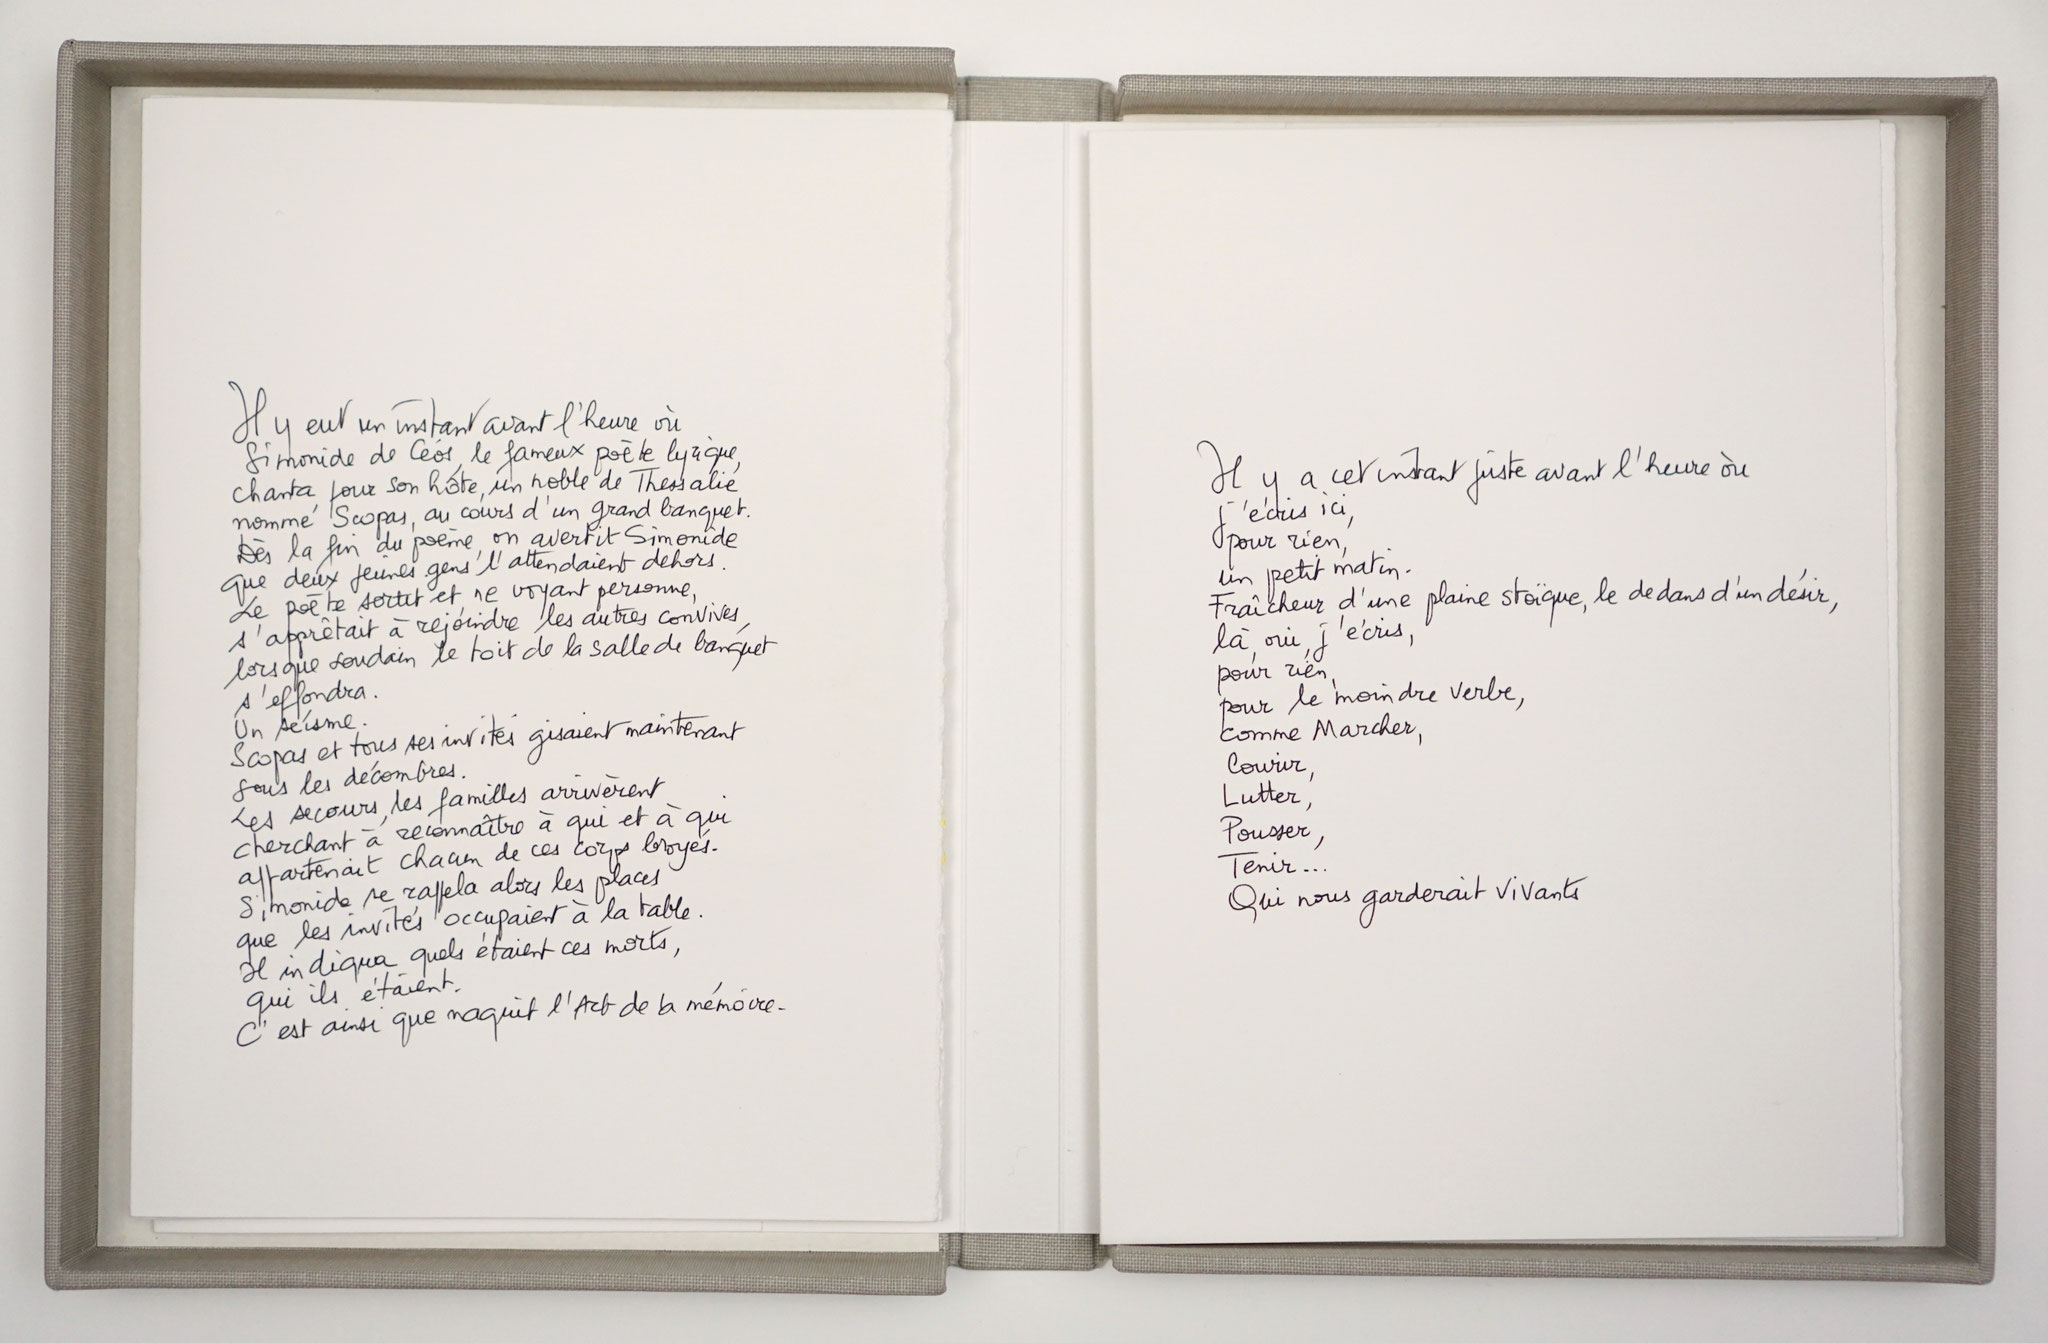 Il y eut un instant avant l'heure où
Simonide de Céos, le fameux poète lyrique,
chanta pour son hôte, un noble de Thessalie
nommé Scopas, au cours d'un grand banquet.
Dès la fin du poème, on avertit Simonide
que deux jeunes gens l'attendaient dehors.
Le poète sortit et ne voyant personne,
s'apprêtait à rejoindre les autres convives,
lorsque soudain le toit de la salle de banquet
s'effondra.
Un séisme.
Scopas et tous ses invités gisaient maintenant
sous les décombres.
Les secours, les familles arrivèrent
cherchant à reconnaître à qui et à qui
appartenait chacun de ces corps broyés.
Simonide se rappela alors les places
que les invités occupaient à la table.
Il indiqua quels étaient ces morts,
qui ils étaient.
C'est ainsi que naquit l'Art de la mémoire.
Il y a cet instant juste avant l'heure où
j'écris ici,
pour rien,
un petit matin.
Fraîcheur d'une plaine stoïque, le dedans d'un désir,
là, oui, j'écris,
pour rien,
pour le moindre verbe,
comme Marcher,
Courir,
Lutter,
Pousser,
Tenir...
Qui nous garderait vivants